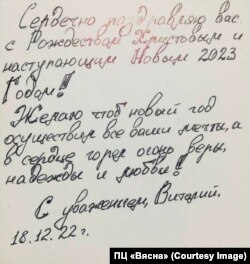 Сердечно поздравляю вас,
с Рождеством Христовым и
наступающим Новым 2023
Годом!
Желаю чтоб новый год
осуществил все ваши мечты, а
в сердце горел огонь веры,
надежды и любви!
С уважением, Виталий.
18.12.22 г.
ПЦ «Вясна» (Courtesy Image)